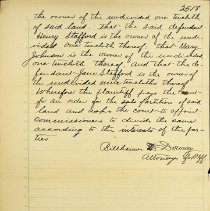 the owner of the undivided one twelfth
of said land. That the said defendant
Henry Stafford is the owner of the undi-
vided one twelfth thereof, that Mary
Johnson is the owner of the undivided
one twelfth thereof. And that the de-
fendant Jane Stafford is the owner of
the undivided one twelfth thereof
Wherefore the plaintiff pray the Court
for an order for the sale partition of said
land and asks the court to appoint
commissioners to divide the same
according to the interests of the par-
ties
Attorney for Plff